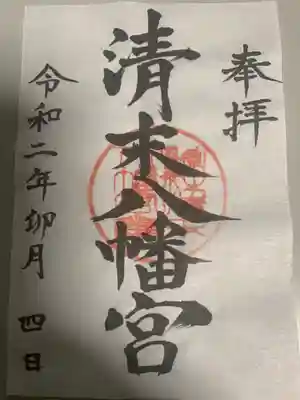 奉拝
清末八幡宮
令和二年卯月 四日